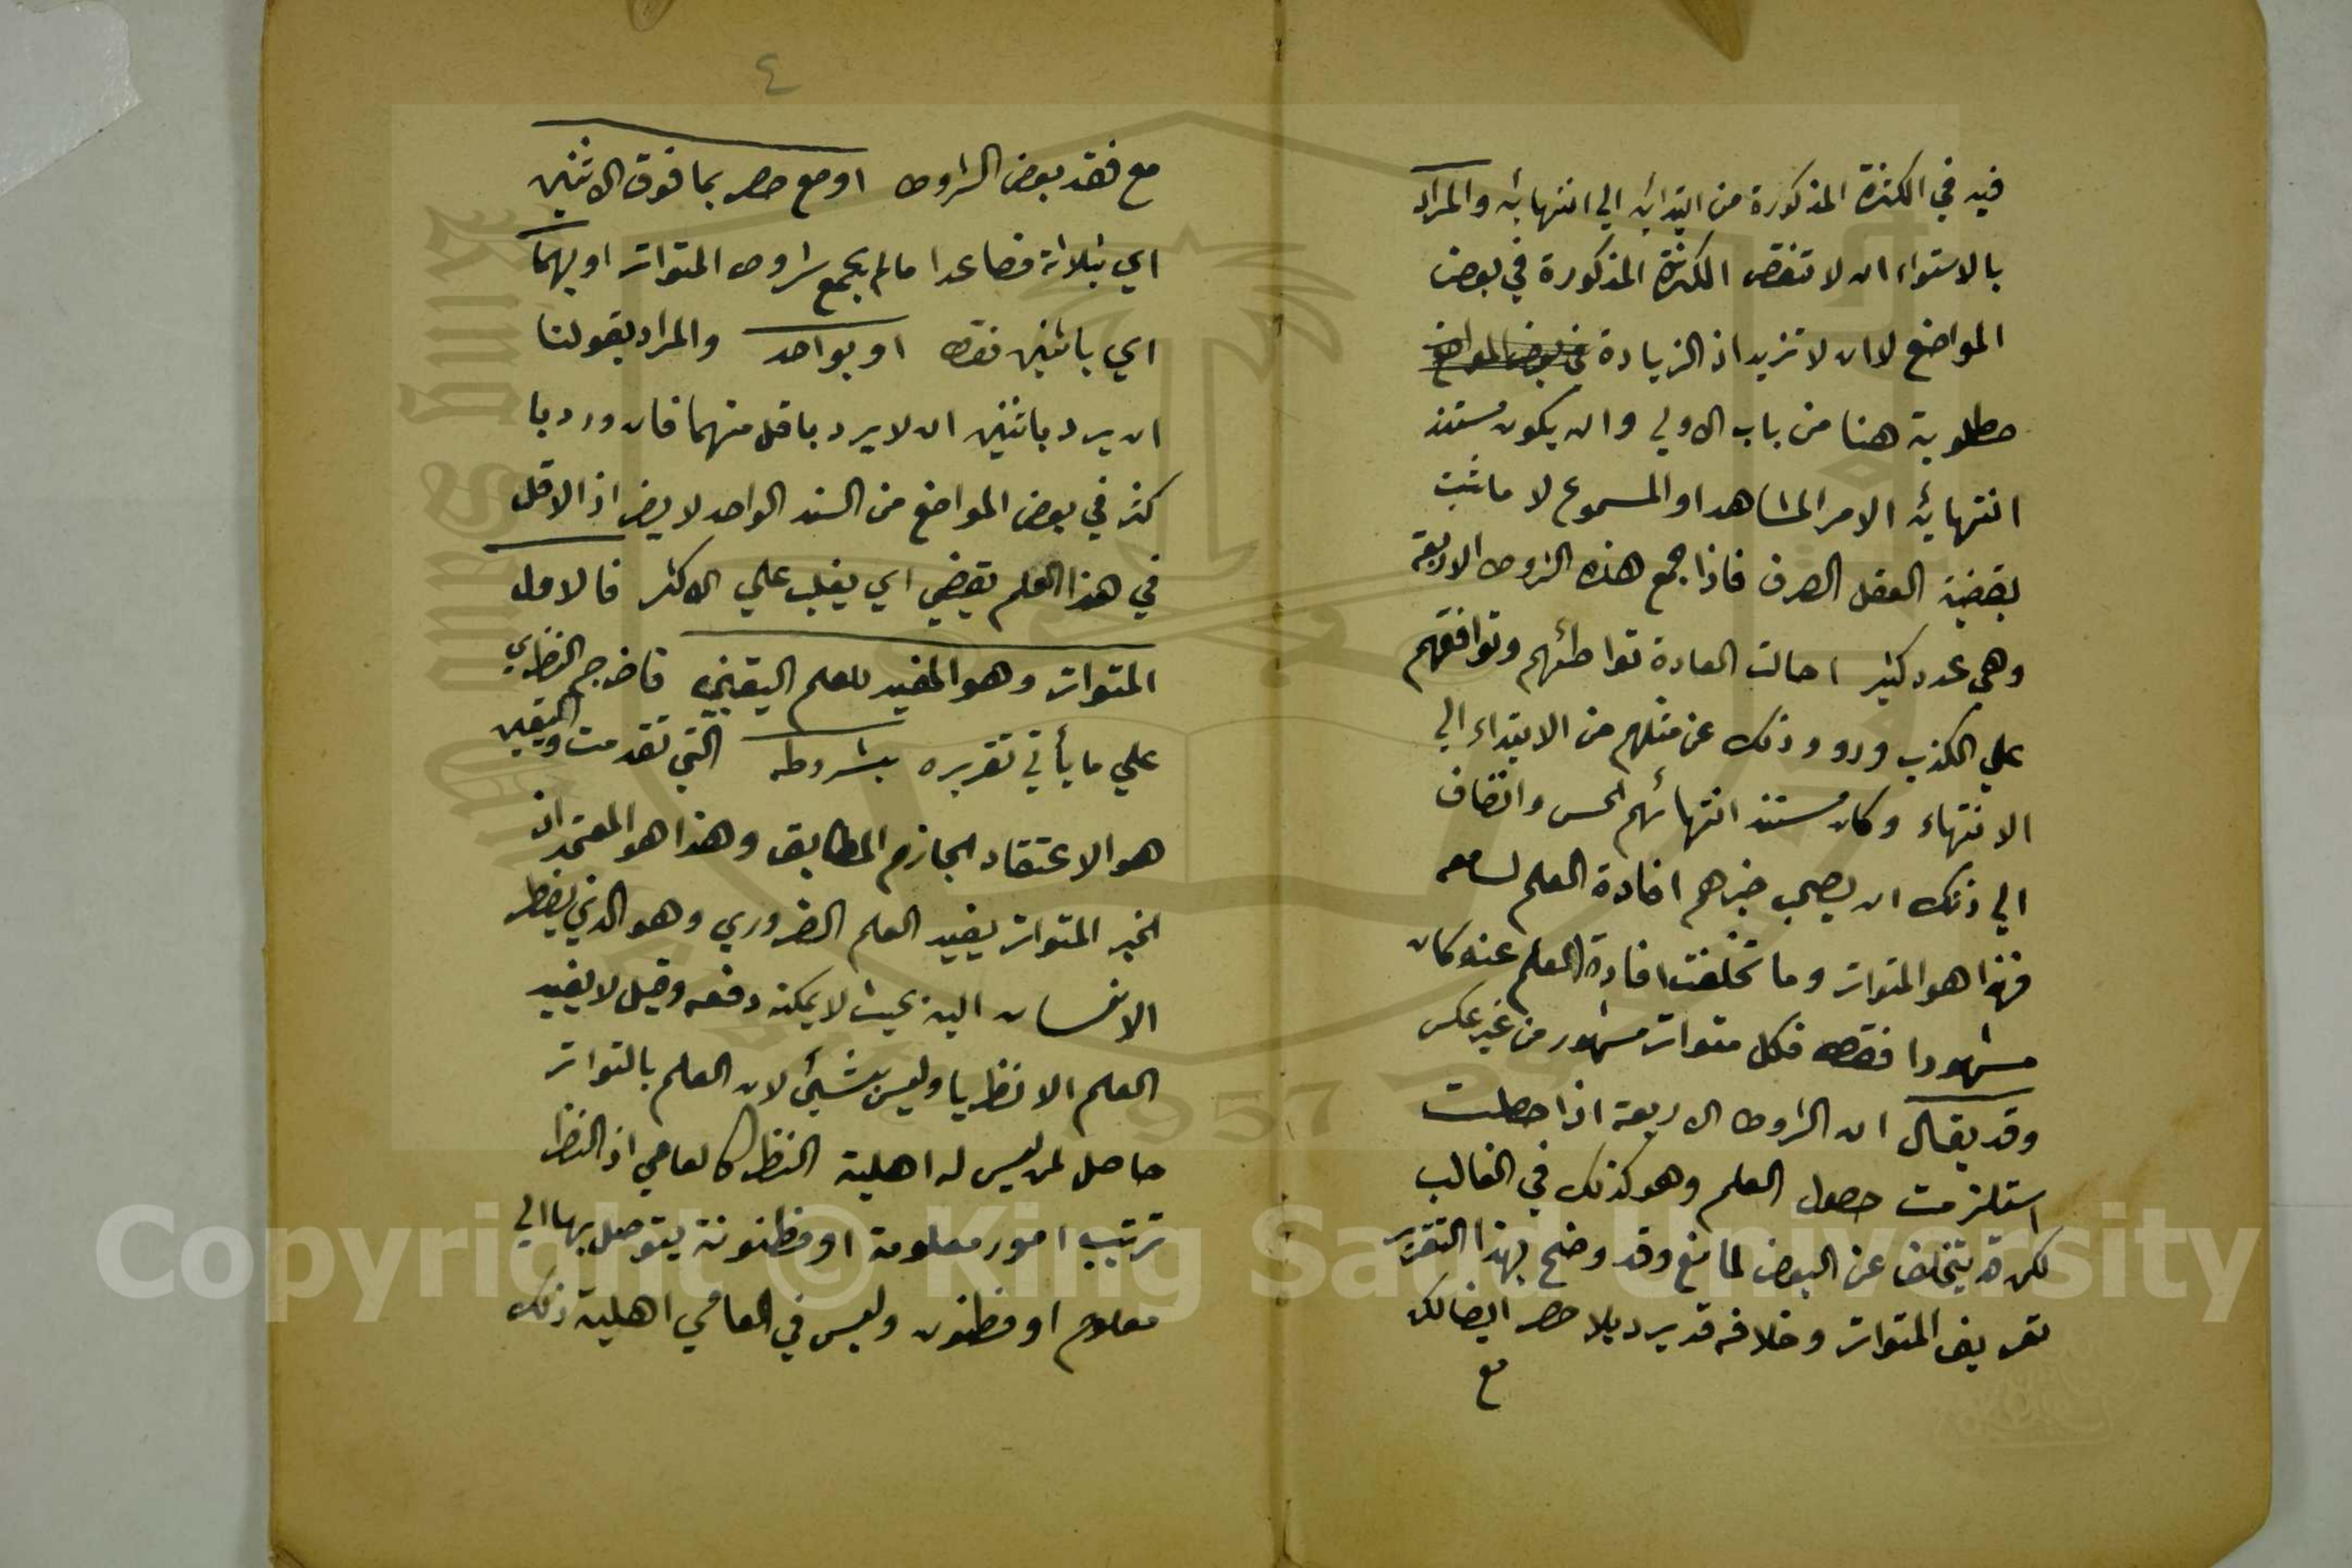 فيه في الكثرة المذكورة من ابتدائه الي انتهائه والمراد
بالاستواء ان لا تنقص الكثرة المذكورة في بعض
المواضع لا ان لا تزيد اذ الزيادة في بعض المواضع
مطلوبة هنا من باب الاولي وان يكون مستند
انتهائه الامر المشاهد او المسموع لا ما ثبت
بقضية العقل الصرف فاذا جمع هذه الشروط الاربعة
وهي عدد كثير احالت العادة تواطئهم وتوافقهم
علي الكذب ورووا ذلك عن مثلهم من الابتداء الي
الانتهاء وكان مستند انتهائهم الحس وانضاف
الي ذلك ان يصحب خبرهم افادة العلم لسامعه
فهذا هو المتواتر وما تخلفت افادة العلم عنه كان
مشهورا فقط فكل متواتر مشهور من غير عكس
وقد يقال ان الشروط الاربعة اذا حصلت
استلزمت حصول العلم وهو كذلك في الغالب
لكن قد يتخلف عن البعض لمانع وقد وضح بهذا التقرير
تعريف المتواتر وخلافه قد يرد بلا حصر ايضا لكن
مع
٤
مع فقد بعض الشروط او مع حصر بما فوق الاثنين
اي بثلاثة فصاعدا ما لم يجمع شروط المتواتر او بهما
اي باثنين فقط او بواحد والمراد بقولنا
ان يرد باثنين ان لا يرد باقل منهما فان ورد با
كثر في بعض المواضع من السند الواحد لا يضر اذ الاقل
في هذا العلم يقضي اي يغلب علي الاكثر فالاول
المتواتر وهو المفيد للعلم اليقيني فاخرج النظري
علي ما يأتي تقريره بشروطه التي تقدمت واليقين
هو الاعتقاد الجازم المطابق وهذا هو المعتمد ان
الخبر المتواتر يفيد العلم الضروري وهو الذي يضطر
الانسان اليه بحيث لا يمكنه دفعه وقيل لا يفيد
العلم الا نظريا وليس بشيئ لان العلم بالتواتر
حاصل لمن ليس له اهلية النظر كالعامي اذ النظر
ترتيب امور معلومة او مظنونة يتوصل بها الي
معلوم او مظنون وليس في العامي اهلية ذلك
Copyright © King Saud University
1957